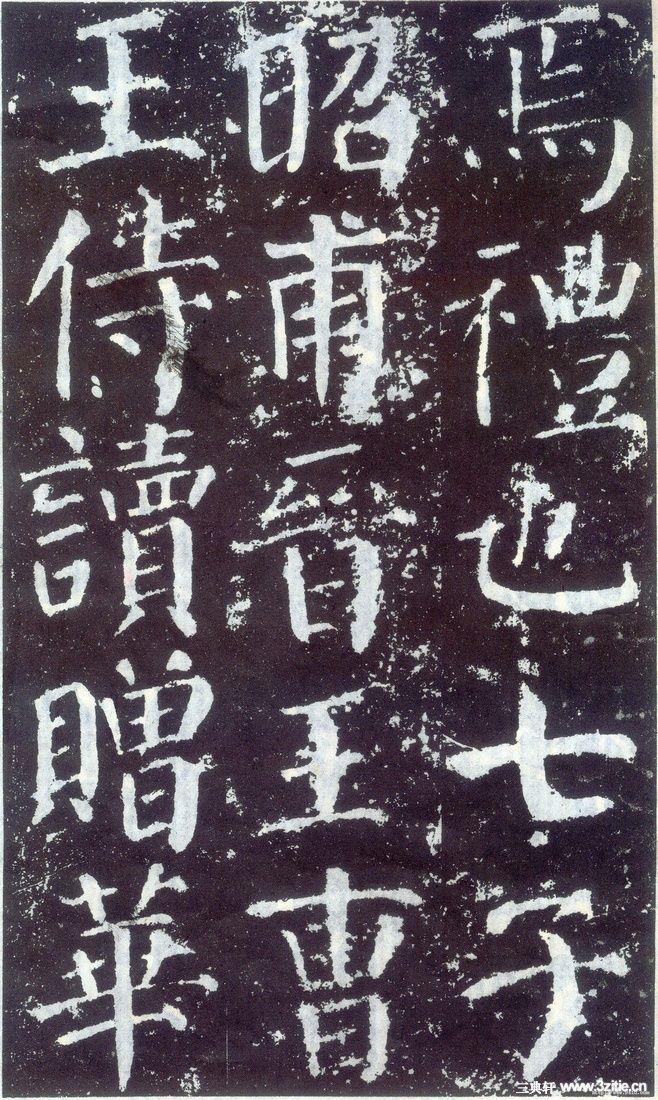 焉禮也七子
昭甫晉王曺
王侍讀贈華
三典轩 www.3zitie.cn